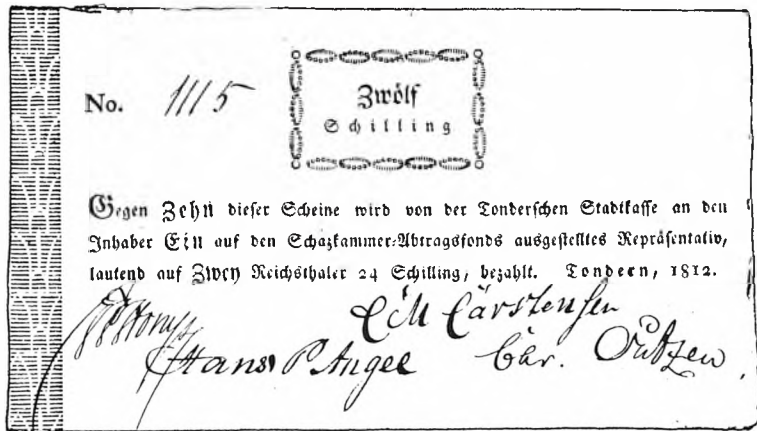 No. 1115
Zwölf
Schilling
Gegen Zehn dieser Scheine wird von der Tonderschen Stadtkasse an den
Inhaber Ein auf den Schazkammer-Abtragsfonds ausgestelltes Repräsentativ,
lautend auf Zwey Reichsthaler 24 Schilling, bezahlt. Tondern, 1812.
Carstensen
Hans P Angel Chr.